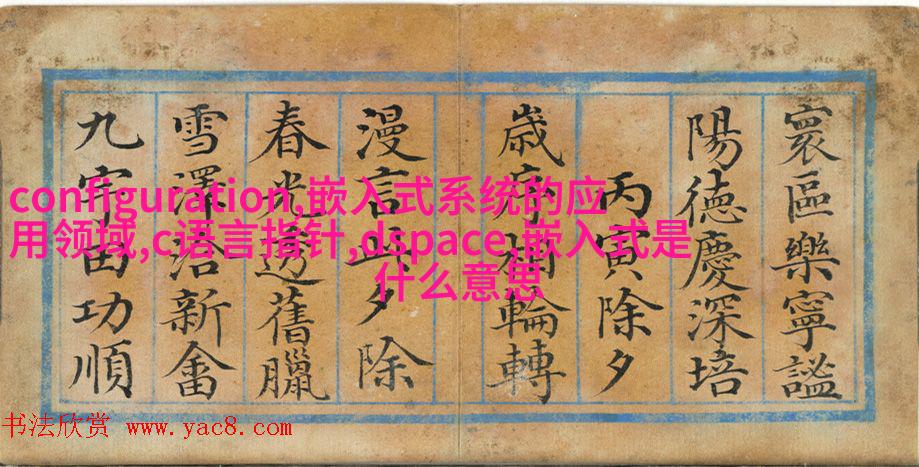 寰區樂寧謐
陽德慶深培
丙寅除夕
歲輪轉
漫言夕除
春光透舊臘
雪澤洽新畬
九功順
configuration,嵌入式系统的应
用领域,c语言指针,dspace,嵌入式是
什么意思
书法欣赏 www.yac8.com